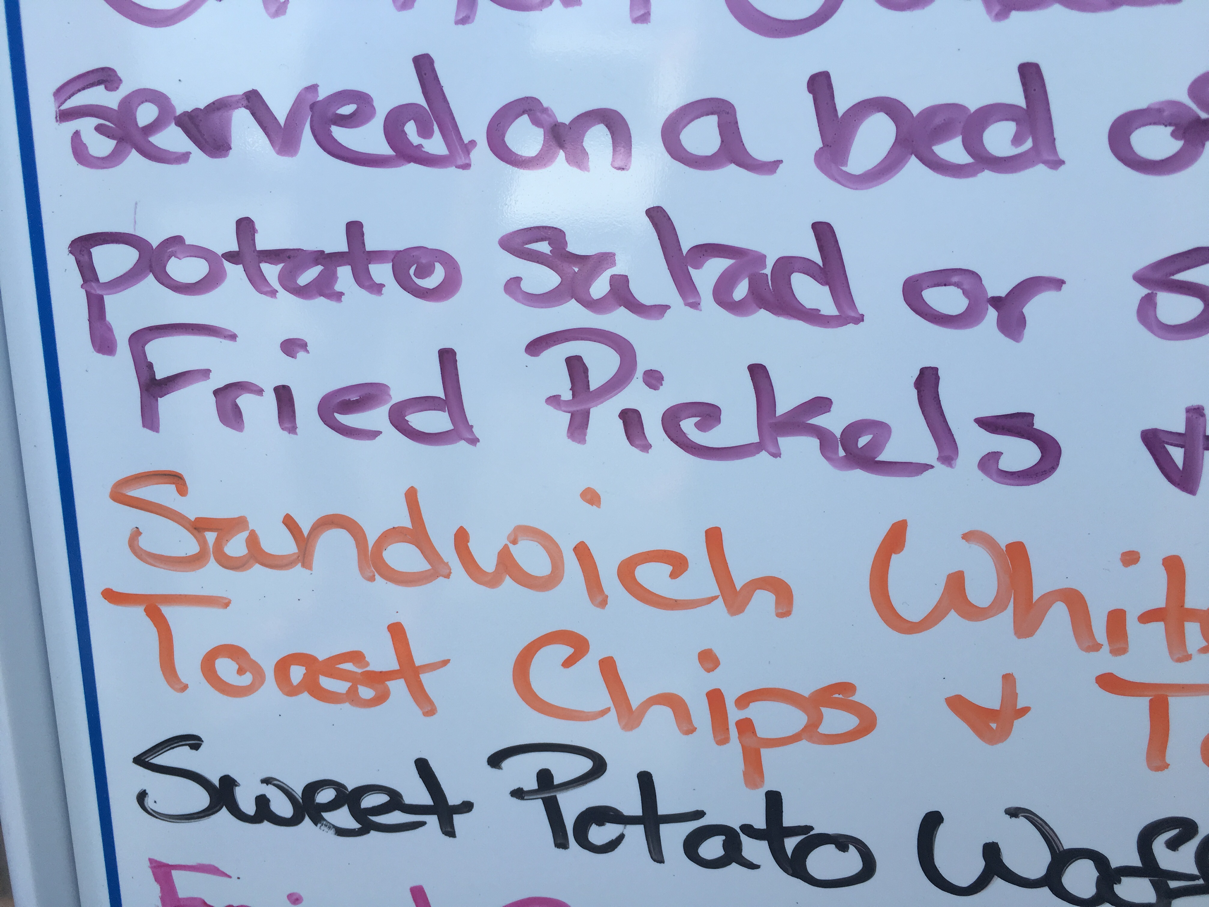 served on a bed
potato salad or
Fried Pickels &
Sandwich
Toast Chips &
Sweet Potato